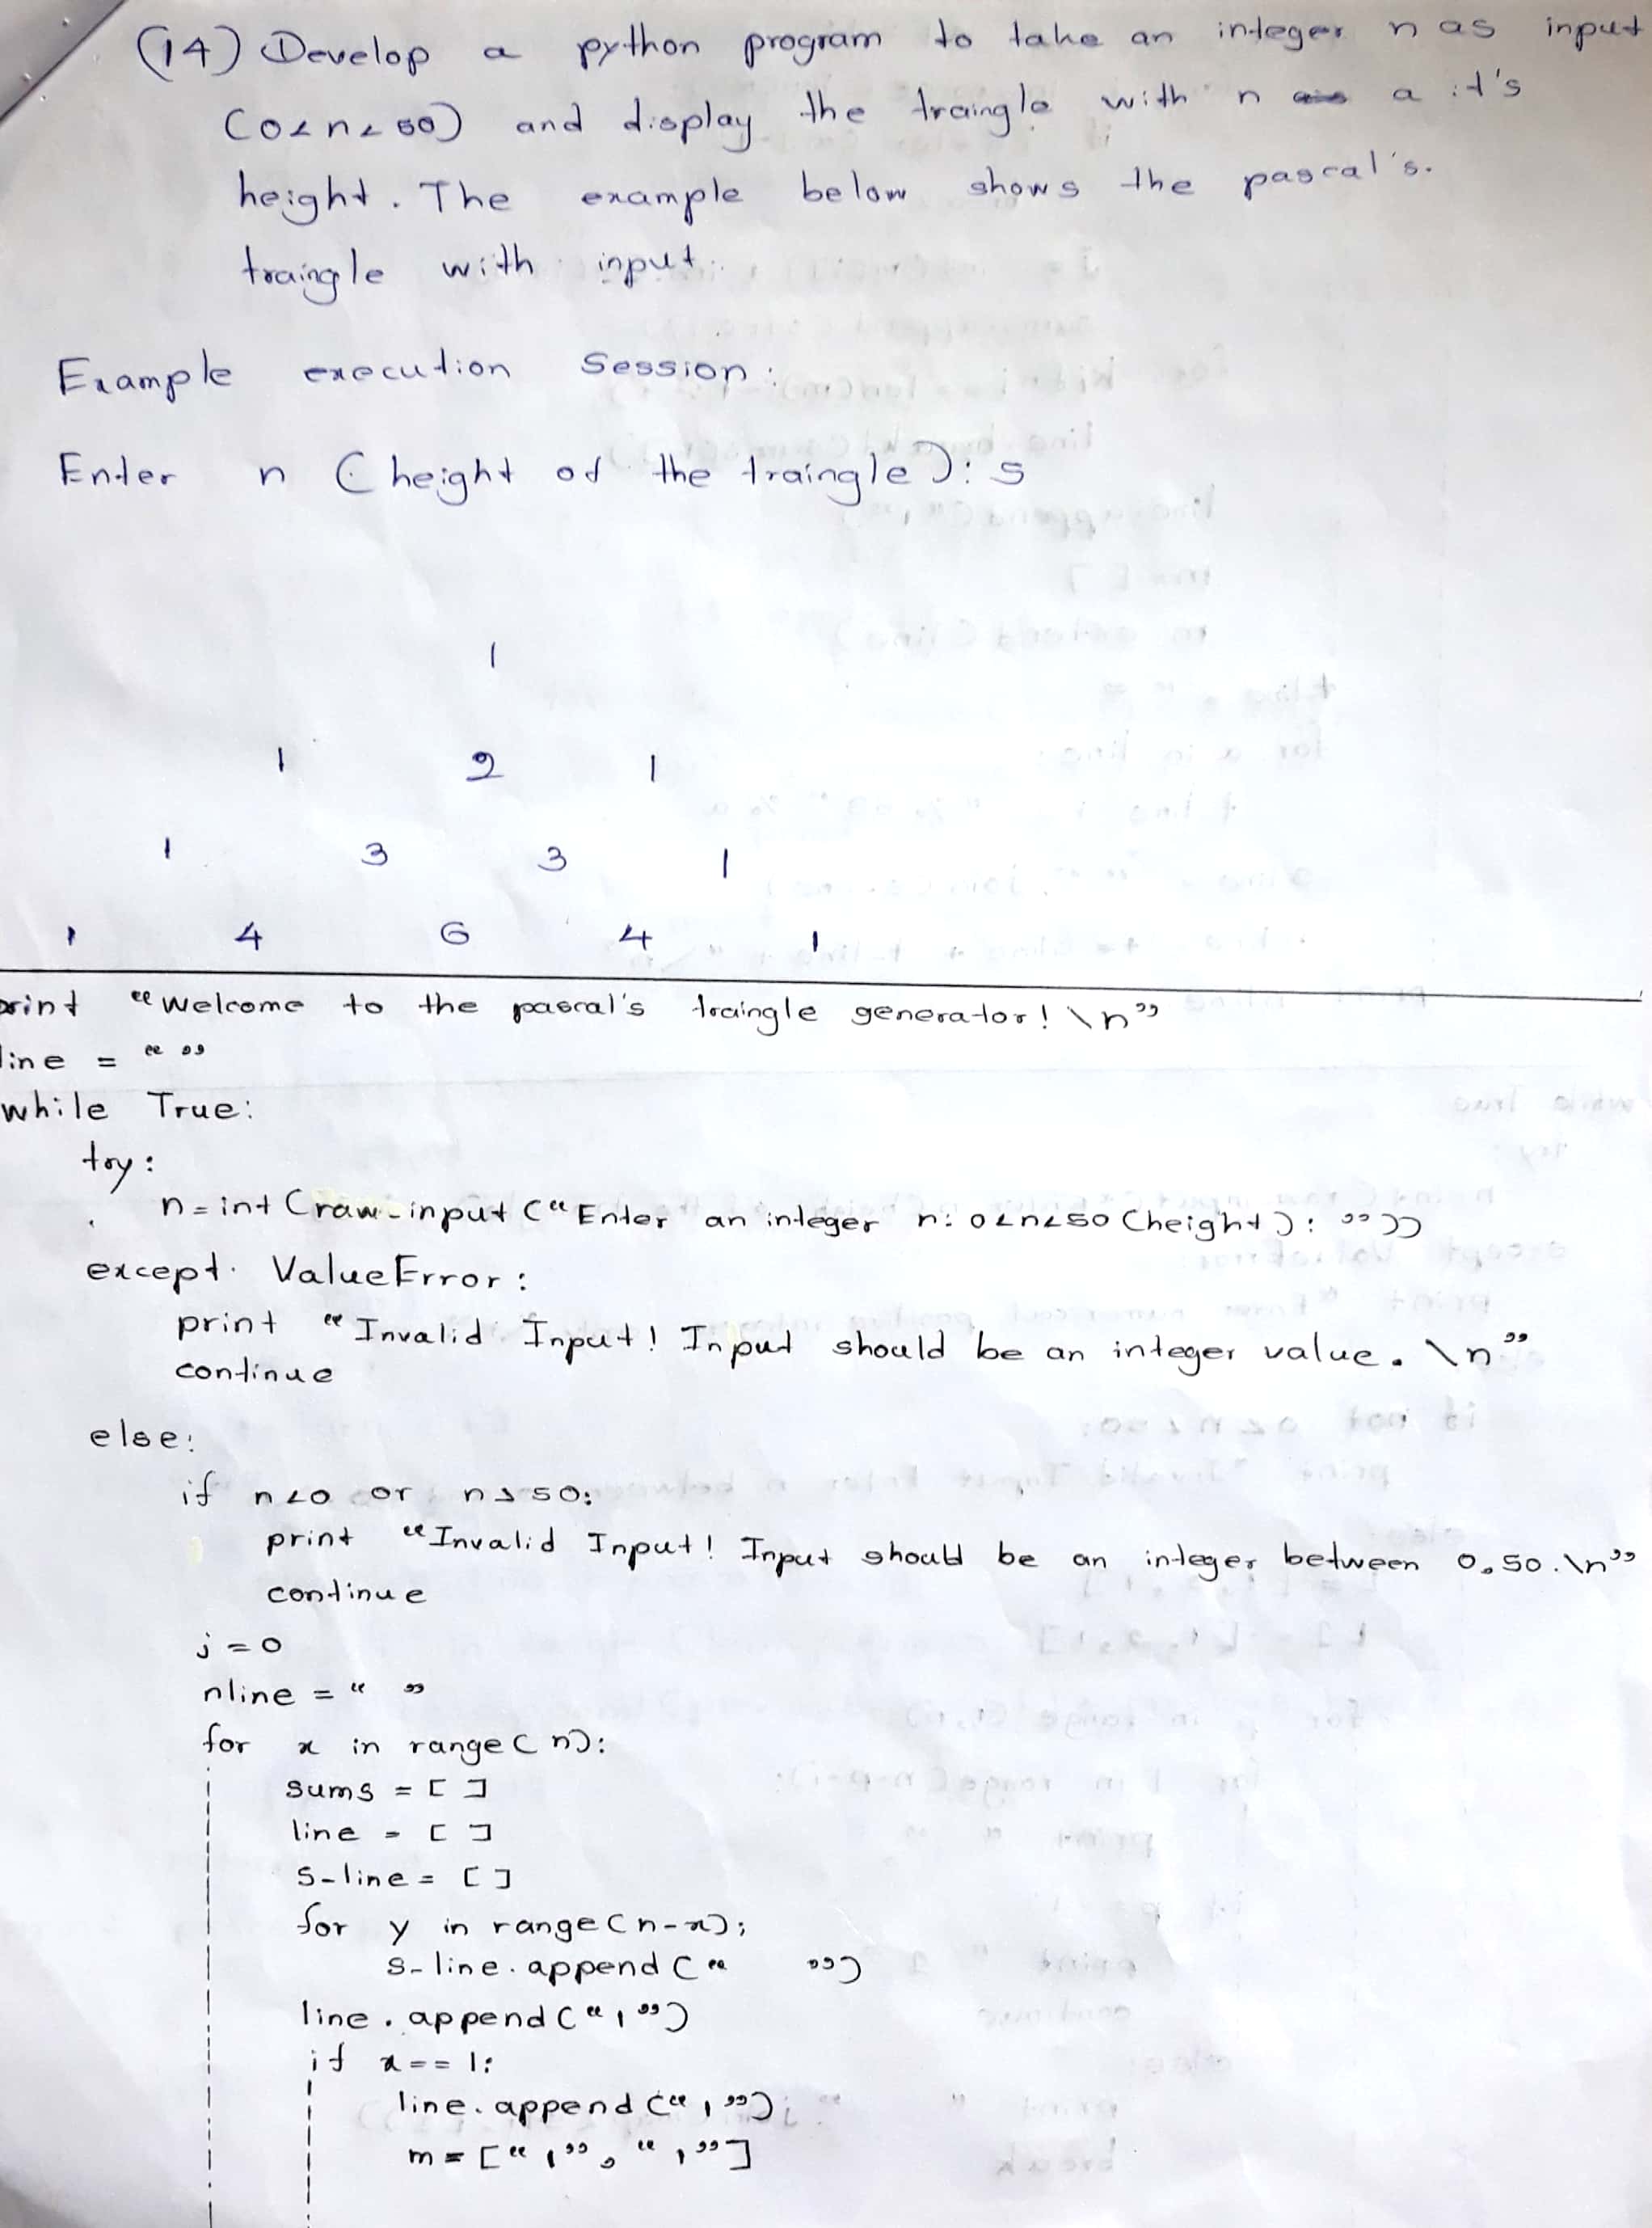 (14) Develop a python program to take an integer n as input
(0<n<50) and display the traingle with n a it's
height. The example below shows the pascal's.
traingle with input.
Example execution Session:
Enter n (height of the traingle): 5
1
1 2 1
1 3 3 1
1 4 6 4 1
print "Welcome to the pascal's traingle generator! \n"
line = " "
while True:
try:
n = int (raw-input ("Enter an integer n: 0<n<50 (height): "))
except ValueError:
print "Invalid Input! Input should be an integer value. \n"
continue
else:
if n<0 or n>50:
print "Invalid Input! Input should be an integer between 0,50. \n"
continue
j = 0
nline = " "
for x in range(n):
sums = [ ]
line = [ ]
s-line = [ ]
for y in range(n-x);
s-line.append (" ")
line.append ("1")
if x == 1:
line.append ("1");
m = ["1", "1"]